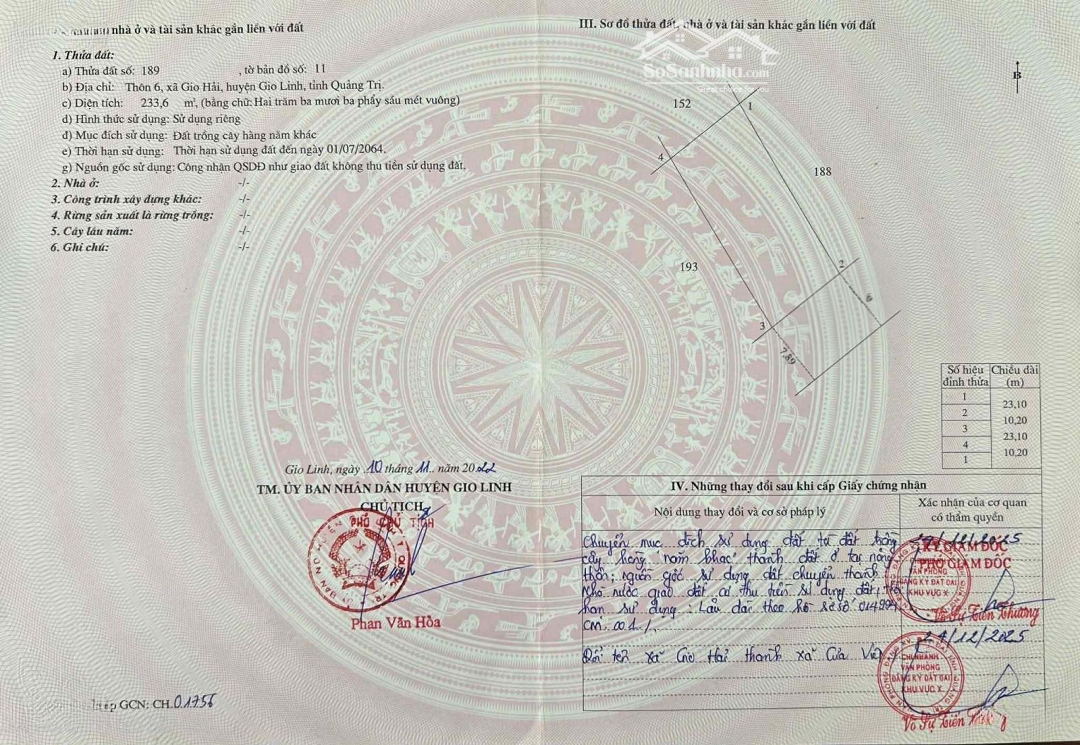 nhà ở và tài sản khác gắn liền với đất
1. Thửa đất:
a) Thửa đất số: 189 , tờ bản đồ số: 11
b) Địa chỉ: Thôn 6, xã Gio Hải, huyện Gio Linh, tỉnh Quảng Trị.
c) Diện tích: 233,6 m², (bằng chữ: Hai trăm ba mươi ba phẩy sáu mét vuông)
d) Hình thức sử dụng: Sử dụng riêng
đ) Mục đích sử dụng: Đất trồng cây hàng năm khác
e) Thời hạn sử dụng: Thời hạn sử dụng đất đến ngày 01/07/2064.
g) Nguồn gốc sử dụng: Công nhận QSDĐ như giao đất không thu tiền sử dụng đất.
2. Nhà ở: -/-
3. Công trình xây dựng khác: -/-
4. Rừng sản xuất là rừng trồng: -/-
5. Cây lâu năm: -/-
6. Ghi chú: -/-
Gio Linh, ngày 10 tháng 11 năm 2022
TM. ỦY BAN NHÂN DÂN HUYỆN GIO LINH
CHỦ TỊCH
PHÓ CHỦ TỊCH
Phan Văn Hòa
GCN: CH.01756
III. Sơ đồ thửa đất, nhà ở và tài sản khác gắn liền với đất
SoSanhnha.com
B
152
1
4
188
193
2
6
3
7,89
Số hiệu đỉnh thửa
Chiều dài (m)
1
23,10
2
10,20
3
23,10
4
10,20
1
IV. Những thay đổi sau khi cấp Giấy chứng nhận
Nội dung thay đổi và cơ sở pháp lý
Xác nhận của cơ quan có thẩm quyền
Chuyển mục đích sử dụng đất từ đất trồng
cây hàng năm khác thành đất ở tại nông
thôn; nguồn gốc sử dụng đất chuyển thành
Nhà nước giao đất có thu tiền sử dụng đất, thời
hạn sử dụng: Lâu dài theo hồ sơ số
CM. 001./.
/12/2025
KT. GIÁM ĐỐC
PHÓ GIÁM ĐỐC
VĂN PHÒNG
ĐĂNG KÝ ĐẤT ĐAI
KHU VỰC X
Đổi tên xã Gio Hải thành xã Cửa Việt
/12/2025
CHI NHÁNH
VĂN PHÒNG
ĐĂNG KÝ ĐẤT ĐAI
KHU VỰC X